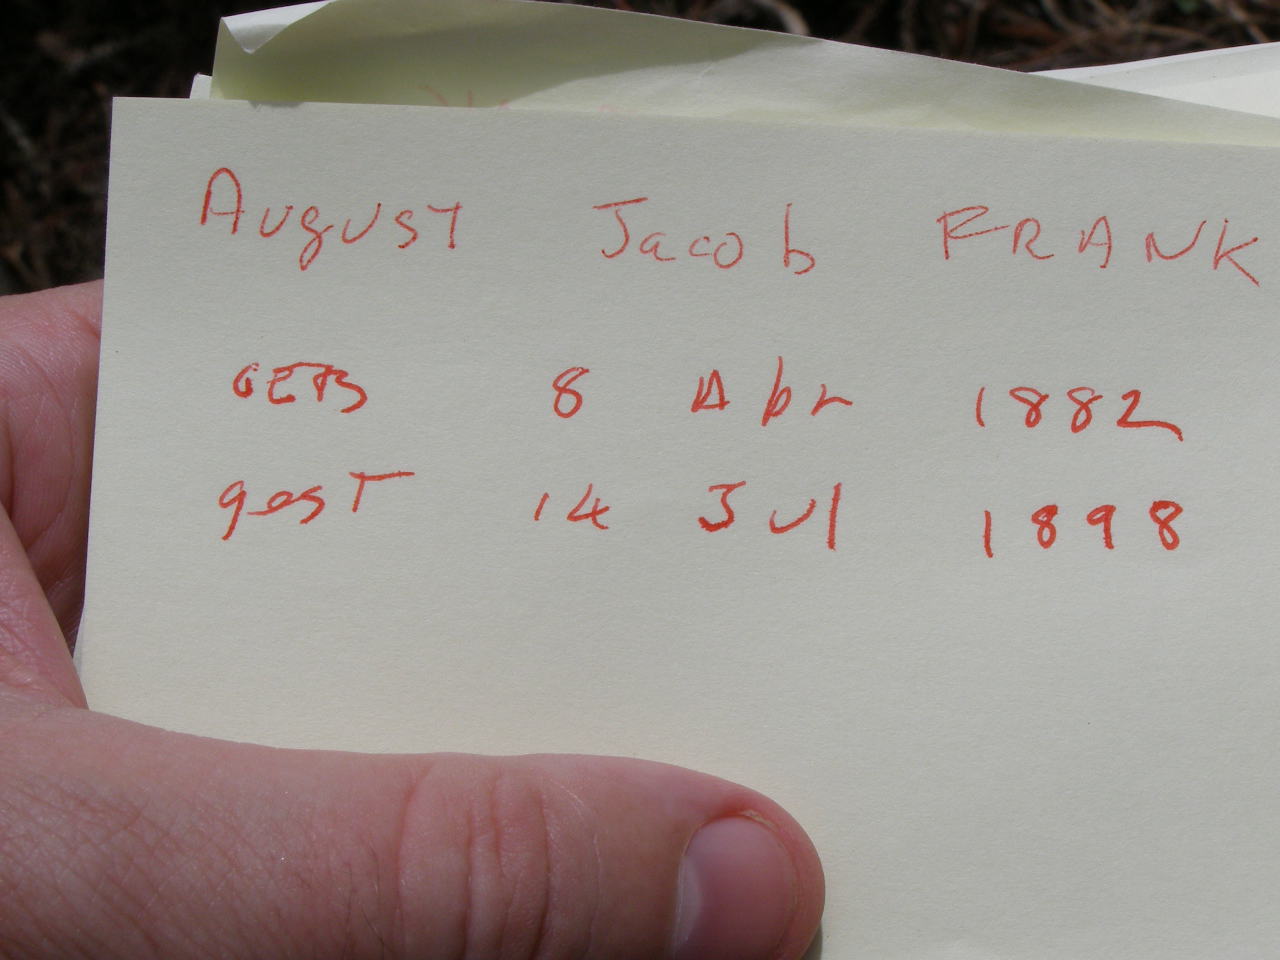 August Jacob FRANK
GEB 8 Abr 1882
gest 14 Jul 1898